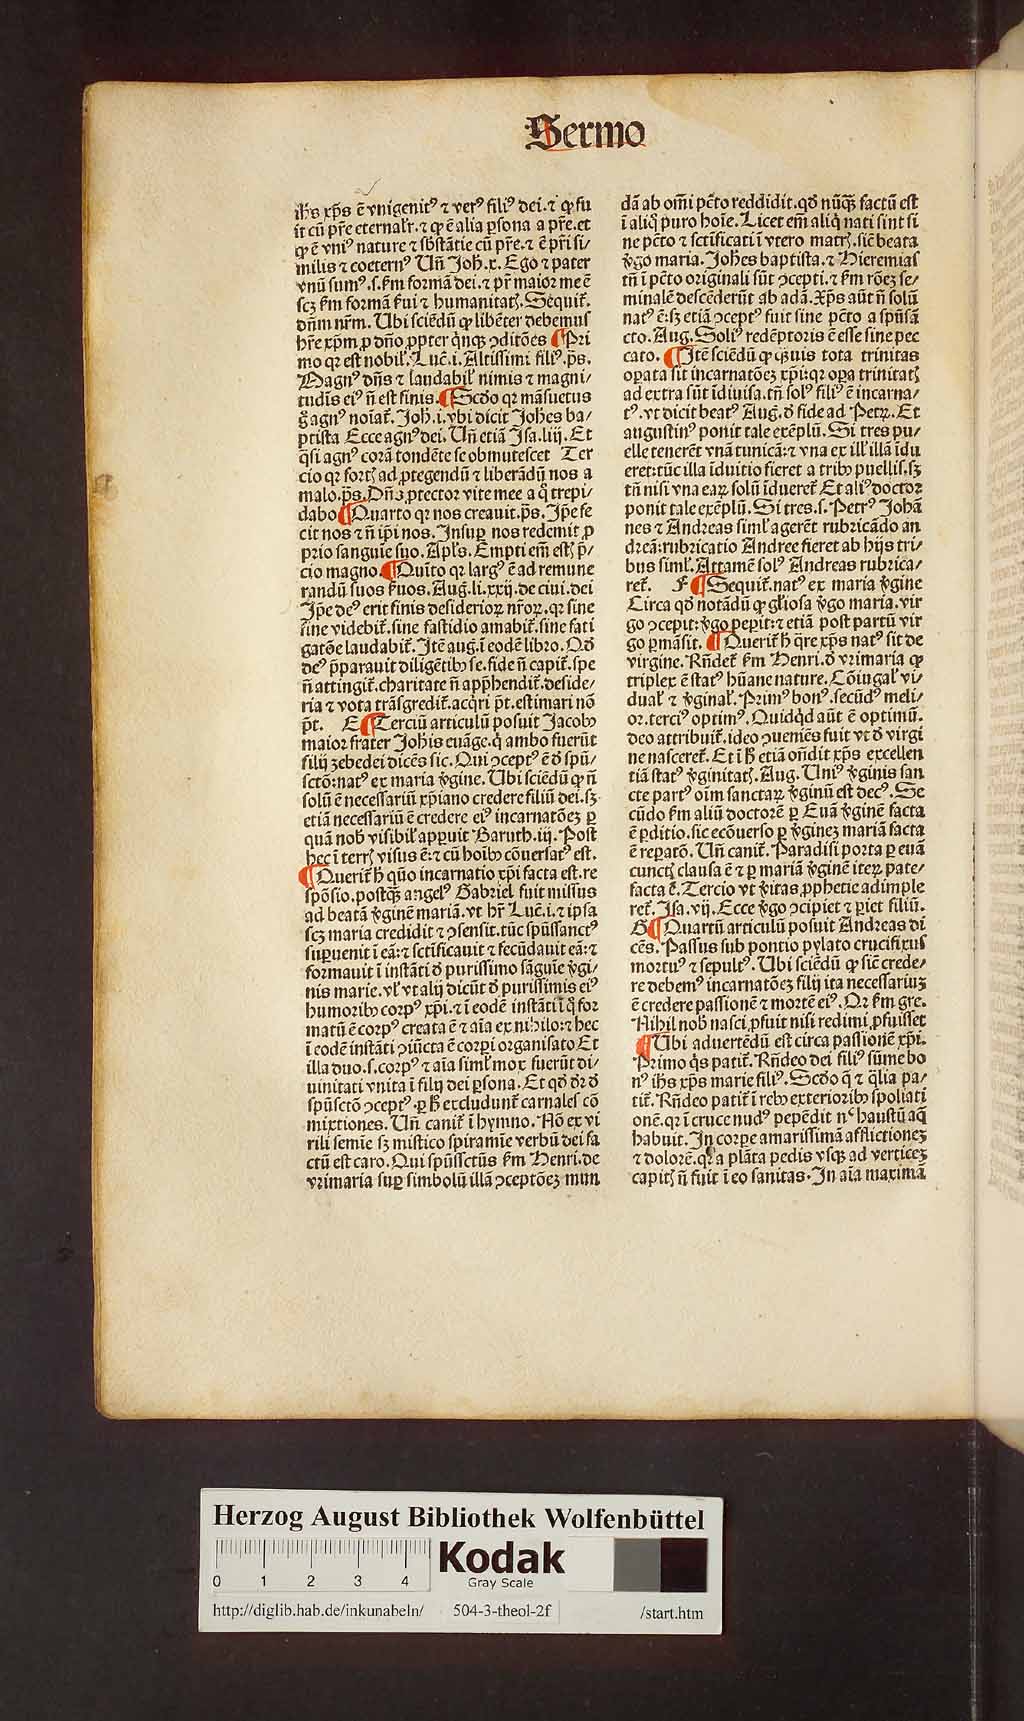 Sermo
ih̄s xp̄s ē vnigenitꝰ ⁊ verꝰ filiꝰ dei. ⁊ ꝙ fu
it cū pr̄e eternalr̄. ⁊ ꝙ ē alia ꝑsona a pr̄e. et
ꝙ ē vniꝰ nature ⁊ sb̄stātie cū pr̄e. ⁊ ē pr̄i si/
milis ⁊ coeternꝰ Un̄ Joh̄. x. Ego ⁊ pater
vnū sumꝰ. s. ẜm formā dei. ⁊ pr̄ maior me ē
scꝫ ẜm formā ẜui ⁊ humanitatꝭ. Sequit̄.
dn̄m nr̄m. Ubi sciēdū ꝙ libēter debemus
hr̄e xp̄m ꝓ dn̄o ꝓpter q̇nqꝫ ꝯditōes ¶ Pri
mo qꝛ est nobil̓. Luc̄. i. Altissimi filiꝰ. p̄s.
Magnꝰ dn̄s ⁊ laudabil̓ nimis ⁊ magni/
tudīs eiꝰ n̄ est finis. ¶ Scd̄o qꝛ māsuetus
g̊ agnꝰ noīat̄. Joh̄. i. vbi dicit Joh̄es ba/
ptista Ecce agnꝰ dei. Un̄ etiā Jsa. liij. Et
q̄si agnꝰ corā tondēte se obmutescet Ter
cio qꝛ fortꝭ ad ꝓtegendū ⁊ liberādū nos a
malo. p̄s. Dn̄s ꝓtector vite mee a q̊ trepi/
dabo ¶ Quarto qꝛ nos creauit. p̄s. Jp̄e fe
cit nos ⁊ n̄ ip̄i nos. Jnsuꝑ nos redemit ꝓ
prio sanguīe suo. Apl̄s. Empti em̄ estꝭ p̄/
cio magno. ¶ Quīto qꝛ largꝰ ē ad remune
randū suos ẜuos. Auḡ. li. xxij. de ciui. dei
Jp̄e deꝰ erit finis desiderioꝝ nr̄oꝝ. qꝛ sine
fine videbit̄. sine fastidio amabit̄. sine fati
gatōe laudabit̄. Jtē aug. i eodē libro. Qd̄
deꝰ p̄parauit diligētibꝰ se. fide n̄ capit̄. spe
n̄ attingit̄. charitate n̄ app̄hendit̄. deside/
ria ⁊ vota trāsgredit̄. acq̇ri p̄t. estimari nō
p̄t. E ¶ Terciū articulū posuit Jacobꝰ
maior frater Joh̄is euāge. q̇ ambo fuerūt
filij zebedei dicēs sic. Qui ꝯceptꝰ ē d̓ spū/
sctō: natꝰ ex maria v̓gine. Ubi sciēdū ꝙ n̄
solū ē necessariū xp̄iano credere filiū dei. sꝫ
etiā necessariū ē credere eiꝰ incarnatōeꝫ ꝑ
quā nob̄ visibil̓ apparuit Baruth. iij. Post
hec ī terrꝭ visus ē: ⁊ cū hoībꝰ cōuersatꝰ est.
¶ Querit̄ ħ quō incarnatio xp̄i facta est. re
spōsio. postqꝫ angelꝰ Gabriel fuit missus
ad beatā v̓ginē mariā. vt hr̄ Luc̄. i. ⁊ ipsa
scꝫ maria credidit ⁊ ꝯsensit. tūc spūssanctꝰ
suꝑuenit ī eā: ⁊ sctificauit ⁊ fecūdauit eā: ⁊
formauit ī instāti d̓ purissimo sāguīe v̓gi/
nis marie. vl̓ vt alij dicūt d̓ purissimis eiꝰ
humoribꝰ corpꝰ xp̄i. ⁊ ī eodē instāti ī q̊ for
matū ē corpꝰ creata ē ⁊ aīa ex nihilo: ⁊ hec
ī eodē instāti ꝯiūcta ē corꝑi organisato Et
illa duo. s. corpꝰ ⁊ aīa siml̓ mox fuerūt di/
uinitati vnita ī filij dei ꝑsona. Et qd̄ dr̄ d̓
spūsctō ꝯceptꝰ. ꝑ ħ excludunt̄ carnales cō
mixtiones. Un̄ canit̄ ī hymno. Nō ex vi
rili semīe sꝫ mistico spiramīe verbū dei fa
ctū est caro. Qui spūssctūs ẜm Henri. de
vrimaria suꝑ simbolū illā ꝯceptōeꝫ mun
dā ab om̄i pc̄to reddidit. qd̄ nūqꝫ factū est
ī aliq̊ puro hoīe. Licet em̄ aliq̇ nati sint si
ne pc̄to ⁊ sctificati ī vtero matrꝭ. sic̄ beata
v̓go maria. Joh̄es baptista. ⁊ Hieremias
tn̄ ī pc̄to originali sūt ꝯcepti. ⁊ ẜm rōeꝫ se/
minalē descēderūt ab adā. Xp̄s aūt n̄ solū
natꝰ ē: sꝫ etiā ꝯceptꝰ fuit sine pc̄to a spūsā
cto. Aug. Soliꝰ redēptoris ē esse sine pec
cato. ¶ Jtē sciēdū ꝙ qꝫuis tota trinitas
oꝑata sit incarnatōeꝫ xp̄i: qꝛ oꝑa trinitatꝭ
ad extra sūt īdiuisa. tn̄ solꝰ filiꝰ ē incarna/
tꝰ. vt dicit beatꝰ Auḡ. d̓ fide ad Petꝝ. Et
augustinꝰ ponit tale exēplū. Si tres pu/
elle tenerēt vnā tunicā: ⁊ vna ex ill̓ illā īdu
eret: tūc illa īduitio fieret a tribꝰ puellis. sꝫ
tn̄ nisi vna eaꝝ solū īdueret̄ Et aliꝰ doctor
ponit tale exēplū. Si tres. s. Petrꝰ Johā
nes ⁊ Andreas siml̓ agerēt rubricādo an
dreā: rubricatio Andree fieret ab hijs tri/
bus siml̓. Attamē solꝰ Andreas rubrica/
ret̄. F ¶ Sequit̄. natꝰ ex maria v̓gine
Circa qd̄ notādū ꝙ gl̓iosa v̓go maria. vir
go ꝯcepit: v̓go peꝑit: ⁊ etiā post partū vir
go ꝑmāsit. ¶ Querit̄ ħ q̄re xp̄s natꝰ sit de
virgine. Rn̄det̄ ẜm Henri. d̓ vrimaria ꝙ
triplex ē statꝰ hūane nature. Cōiugal̓ vi/
dual̓ ⁊ v̓ginal̓. Primꝰ bonꝰ. secūdꝰ meli/
or. terciꝰ optimꝰ. Quidq̇d aūt ē optimū.
deo attribuit̄. ideo ꝯueniēs fuit vt d̓ virgi
ne nasceret̄. Et ī ħ etiā on̄dit xp̄s excellen
tiā statꝰ v̓ginitatꝭ. Aug. Uniꝰ v̓ginis san
cte partꝰ oīm sanctaꝝ v̓ginū est decꝰ. Se
cūdo ẜm aliū doctorē ꝑ Euā v̓ginē facta
ē ꝑditio. sic ecōuerso ꝑ v̓gineꝫ mariā facta
ē reꝑatō. Un̄ canit̄. Paradisi porta ꝑ euā
cunctꝭ clausa ē ⁊ ꝑ mariā v̓ginē iteꝝ pate/
facta ē. Tercio vt v̓itas ꝓphetie adimple
ret̄. Jsa. vij. Ecce v̓go ꝯcipiet ⁊ ꝑiet filiū.
G ¶ Quartū articulū posuit Andreas di
cēs. Passus sub pontio pylato crucifixus
mortuꝰ ⁊ sepultꝰ. Ubi sciēdū ꝙ sic̄ crede/
re debemꝰ incarnatōeꝫ filij ita necessariuꝫ
ē credere passionē ⁊ mortē eiꝰ. Qꝛ ẜm gre.
Nihil nob̄ nasci ꝓfuit nisi redimi ꝓfuisset
¶ Ubi aduertēdū est circa passionē xp̄i.
Primo q̇s patit̄. Rn̄deo dei filiꝰ sūme bo
nꝰ ih̄s xp̄s marie filiꝰ. Scd̄o q̄ ⁊ q̄lia pa/
tit̄. Rn̄deo patit̄ ī rebꝰ exterioribꝰ spoliati
onē. qꝛ ī cruce nudꝰ pepēdit nᶜ haustū aq̄
habuit. Jn corꝑe amarissimā afflictioneꝫ
⁊ dolorē. qꝛ a plāta pedis vsqꝫ ad verticeꝫ
capitꝭ n̄ fuit ī eo sanitas. Jn aīa maximā
Herzog August Bibliothek Wolfenbüttel
0 1 2 3 4
Kodak
Gray Scale
http://diglib.hab.de/inkunabeln/ 504-3-theol-2f /start.htm